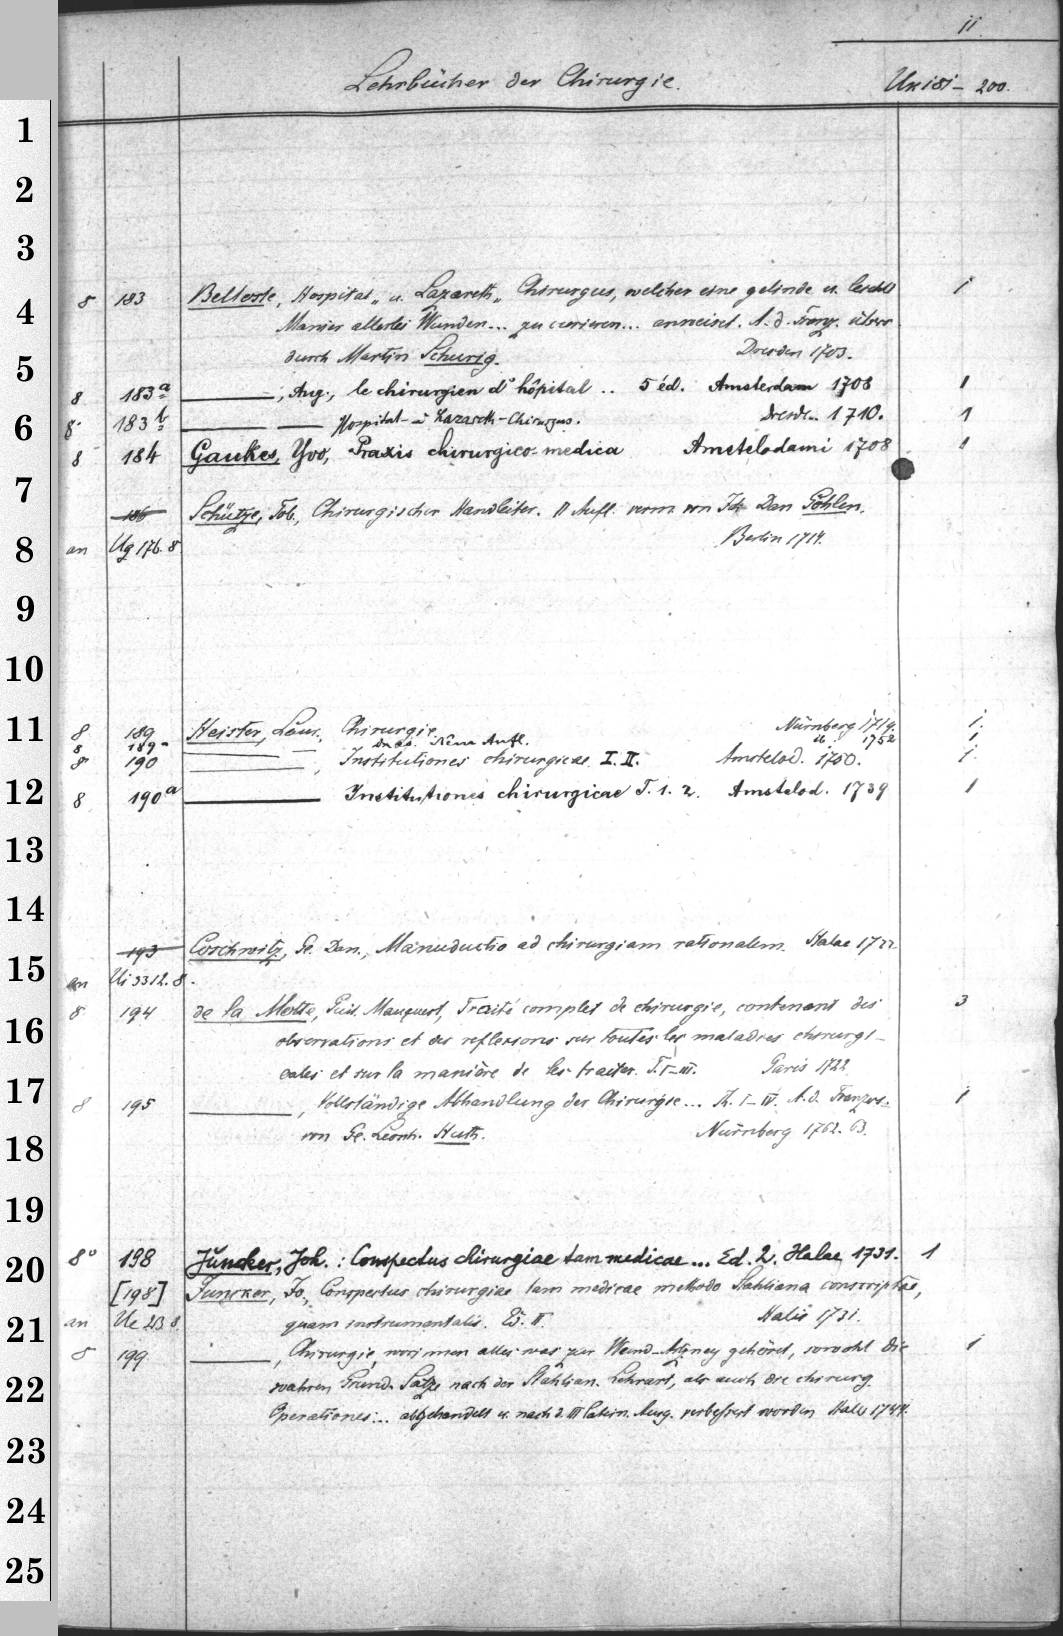 11.
Lehrbücher der Chirurgie. Un 181 - 200.
1
2
3
8 183 Belloste, Hospital- u. Lazareth- Chirurgus, welcher eine gelinde u. 1
4
Manier allerlei Wunden... zu curieren... anweiset. A. d. Franz. übers.
5
durch Martin Schurig. Dresden 1703.
8 183a ———, Aug., le chirurgien d'hôpital .. 5 éd. Amsterdam 1708 1
6
8 183b ——— —— Hospital- u Lazareth-Chirurgus. Dresd.. 1710. 1
8 184 Gaukes, Yvo, Praxis chirurgico-medica Amstelodami 1708 1
7
186 Schütze, Tob., Chirurgischer Handleiter. II Aufl. verm. von Joh. Dan Gohlen.
8
an Ug 176. 8 Berlin 1714.
9
10
11
8 189 Heister, Laur., Chirurgie. Nürnberg 1719. 1.
8 189a ——— — Neue Aufl. ib. 1752 1
8 190 ———, Institutiones chirurgicae I. II. Amstelod. 1750. 1.
12
8 190a ——— Institutiones chirurgicae T. 1. 2. Amstelod. 1739 1
13
14
193 Coschwitz, Ge. Dan., Manuductio ad chirurgiam rationalem. Halae 1722
15
an Ui 3312. 8.
8 194 de la Motte, Guil. Mauquest, Traité complet de chirurgie, contenant des 3
16
observations et des reflexions sur toutes les maladies chirurgi-
cales et sur la manière de les traiter. T. I-III. Paris 1722
17
8 195 ———, Vollständige Abhandlung der Chirurgie... Th. I-IV. A. d. Französ. 1
18
von Ge. Leonh. Huth. Nürnberg 1762. 63.
19
20
8° 198 Juncker, Joh.: Conspectus chirurgiae tam medicae... Ed. 2. Halae 1731. 1
[198] Juncker, Jo., Conspectus chirurgiae tam medicae methodo Stahliana conscriptae,
21
an Ue 213 8. quam instrumentalis. Ed. II. Halis 1731.
8 199 ———, Chirurgie, worinnen alles was zur Wund-Artzney gehöret, sowohl die 1
22
wahren Grund-Sätze nach der Stahlian. Lehrart, als auch die chirurg.
Operationes... abgehandelt u. nach d. III Latein. Ausg. verbessert worden Halle 1744.
23
24
25